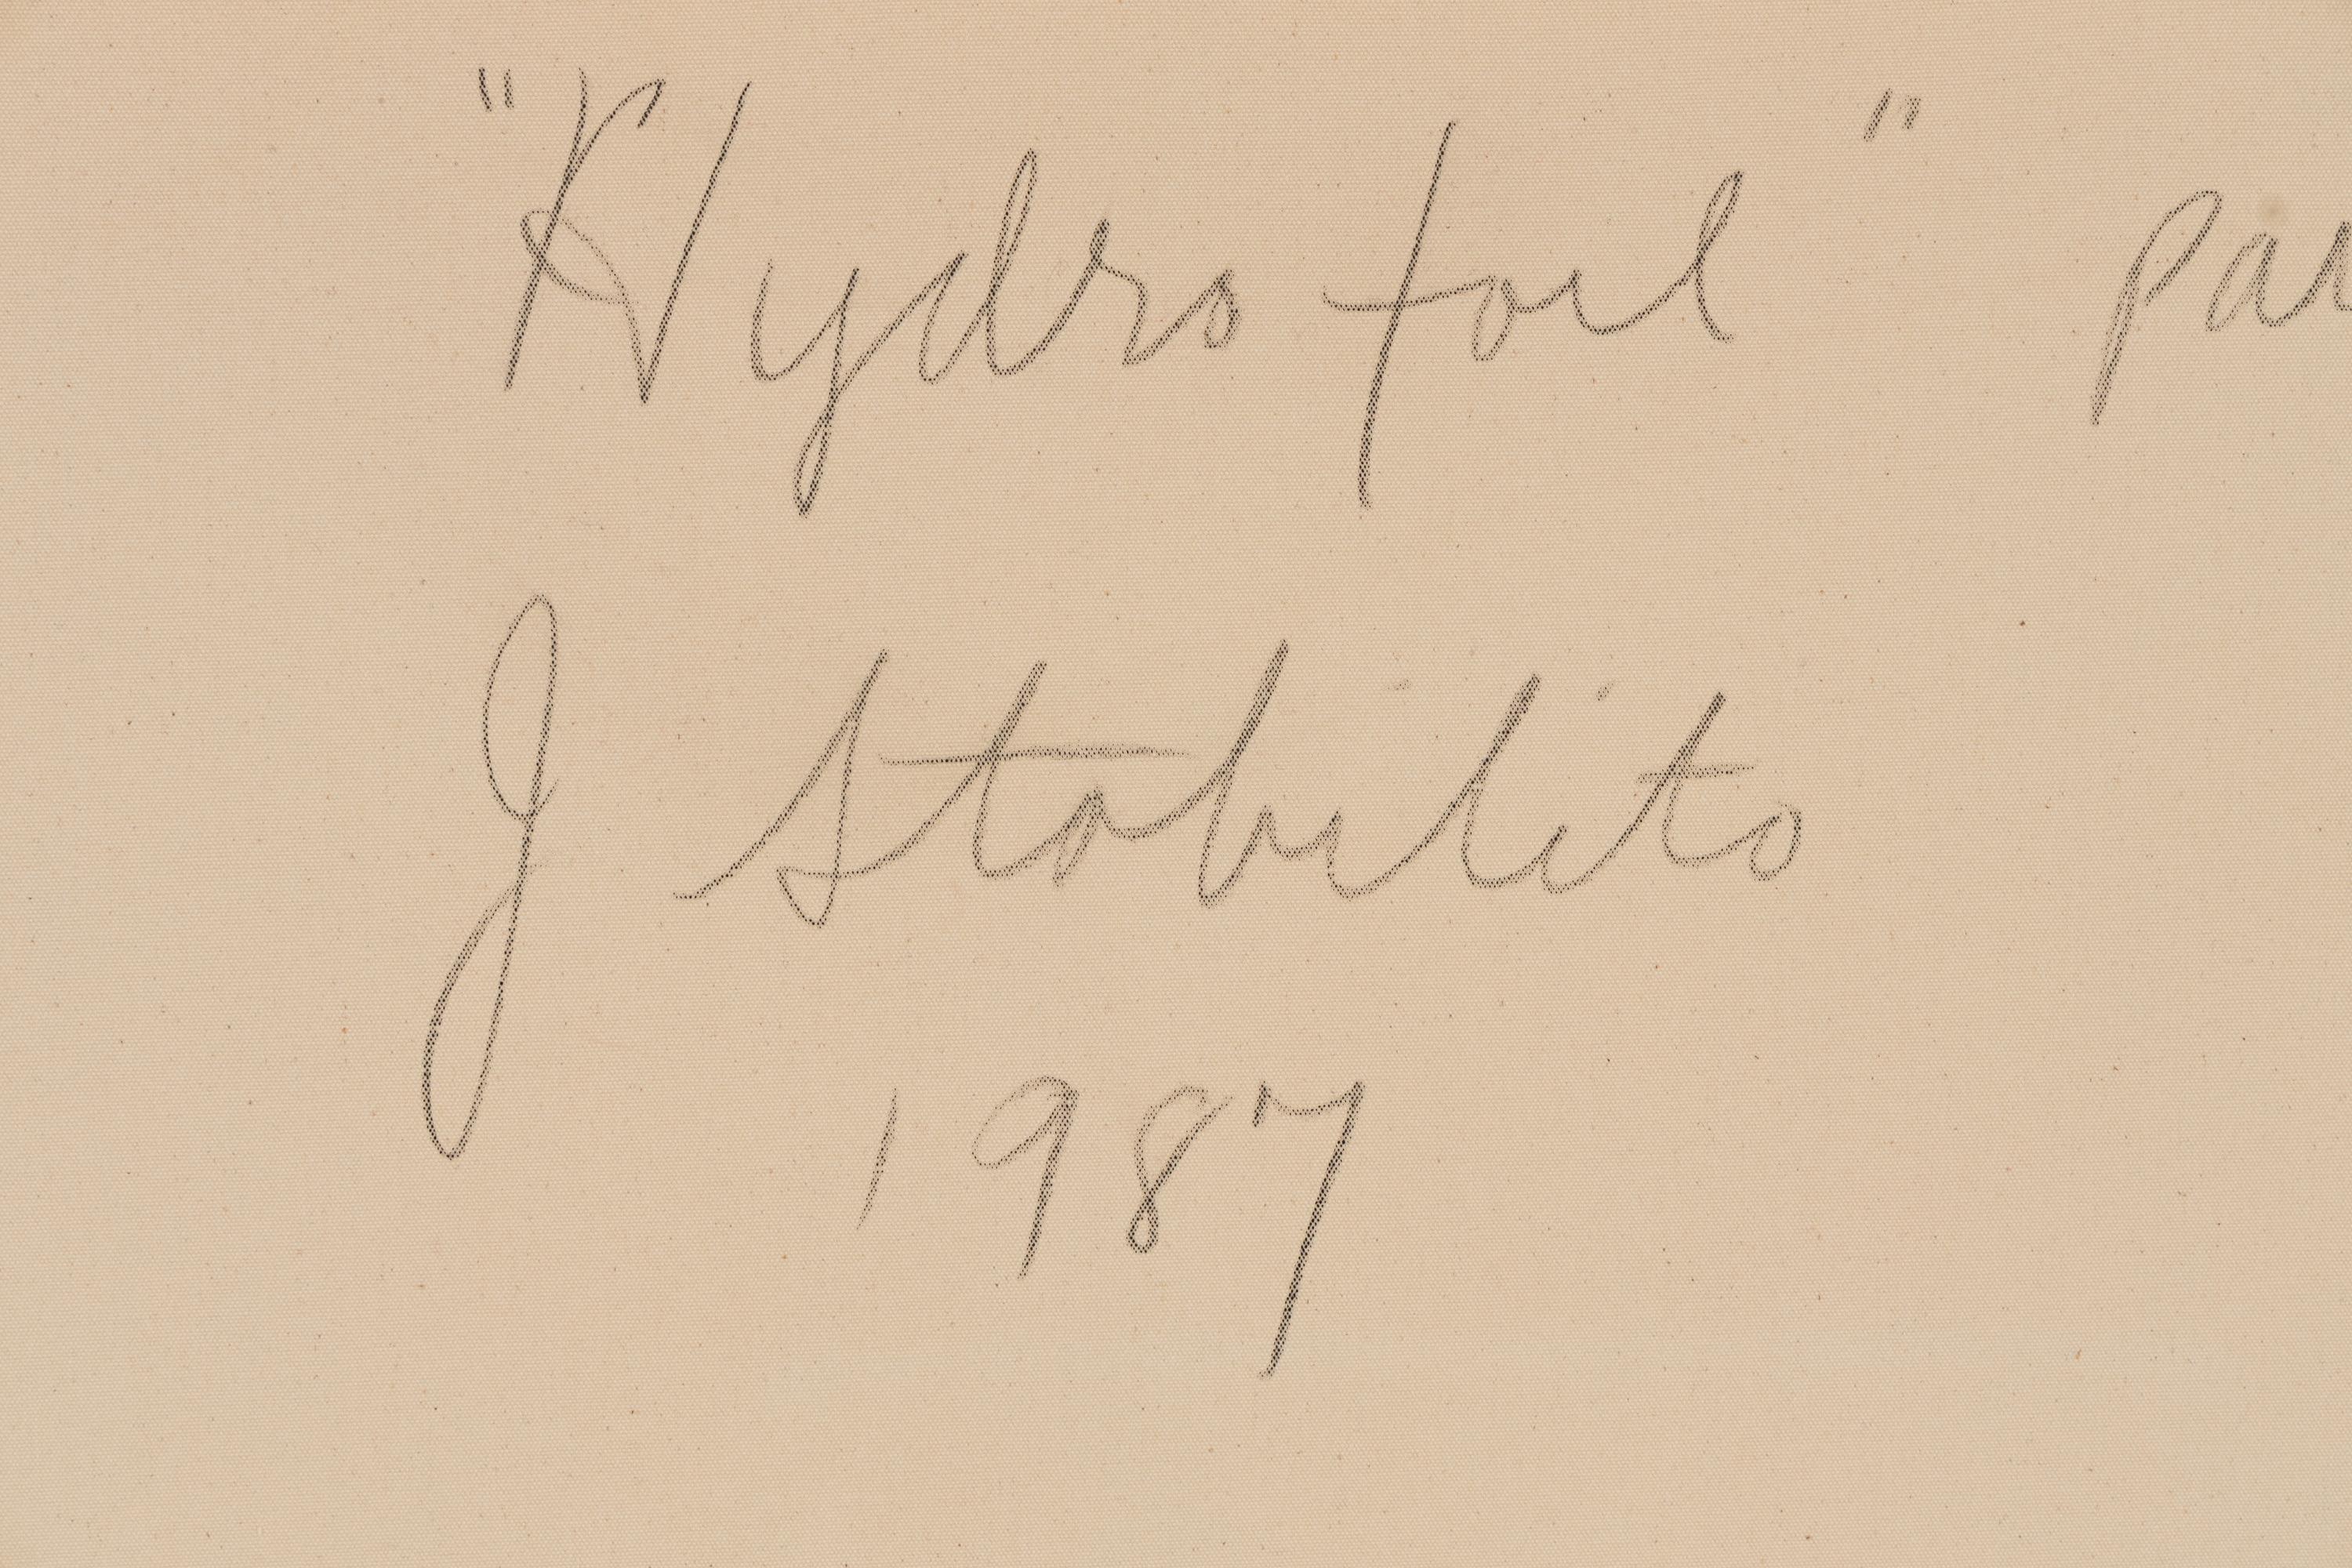 "Hydro foil" pai
J Stabilito
1987